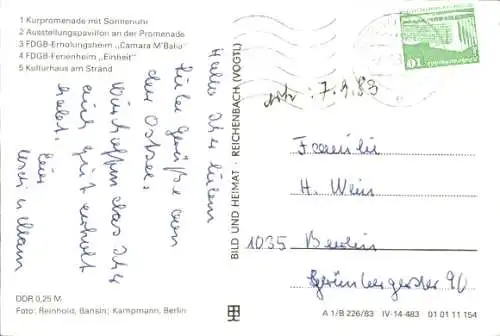 1 Kurpromenade mit Sonnenuhr
2 Ausstellungspavillon an der Promenade
3 FDGB-Erholungsheim „Camara M'Baliu"
4 FDGB-Ferienheim „Einheit"
5 Kulturhaus am Strand
Hallo Ihr Lieben
Liebe Grüße von
der Ostsee.
Wir hoffen das Ihr
auch gut erholt
habt.
DDR 0,25 M
Foto: Reinhold, Bansin; Kampmann, Berlin
BILD UND HEIMAT · REICHENBACH (VOGTL)
10
7.9.83
Familie
H. Wein
1035 Berlin
Grünbergerstr 90
A 1/B 226/83 IV-14-483 01 01 11 154